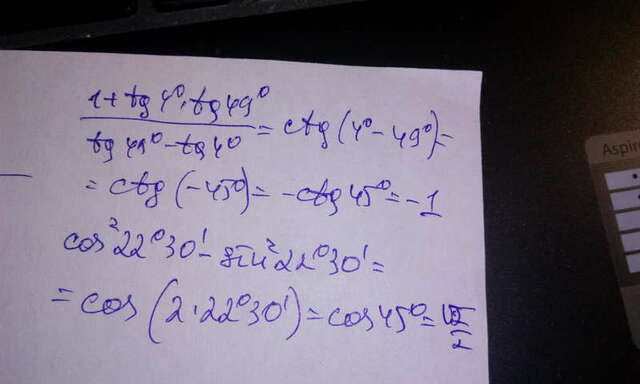 (1 + tg 4° · tg 49°) / (tg 49° - tg 4°) = ctg (4° - 49°) =
= ctg (-45°) = -ctg 45° = -1
cos² 22° 30' - sin² 22° 30' =
= cos (2 · 22° 30') = cos 45° = √2/2
Aspire